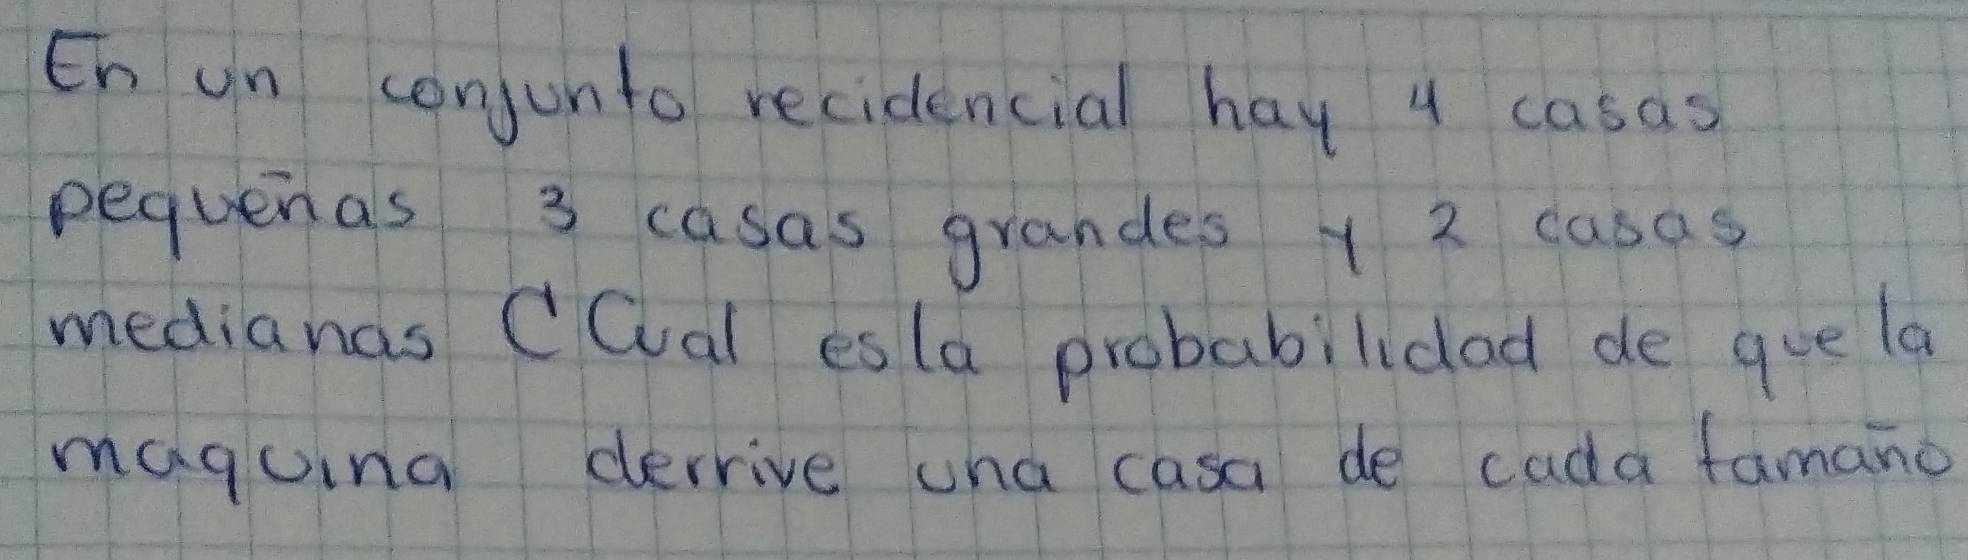 En un conjunto recidencial hay 4 casas
pequeñas 3 casas grandes y 2 casas
medianas ¿Cual es la probabilidad de que la
maquina derrive una casa de cada tamaño